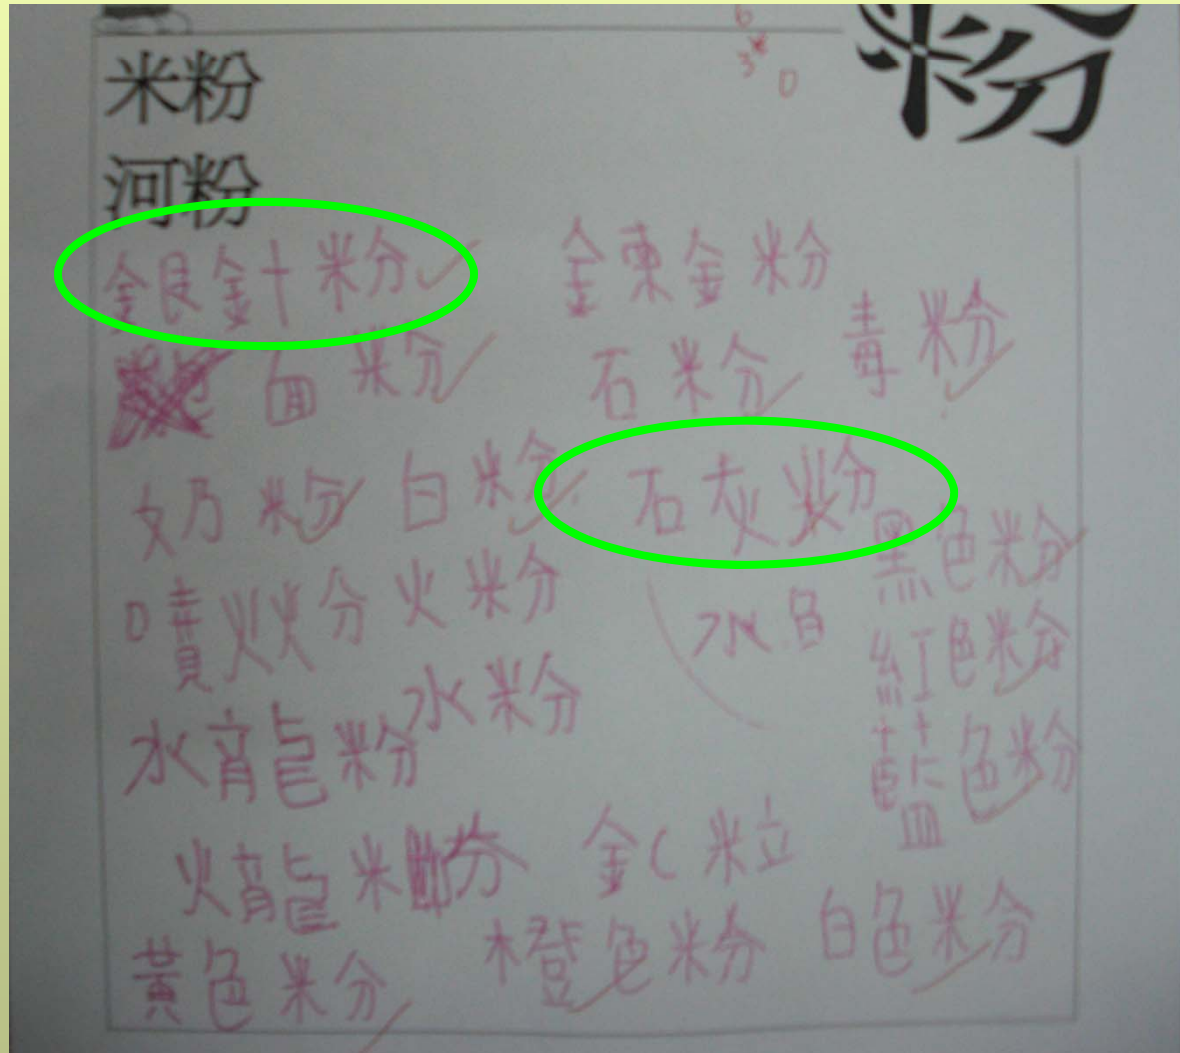 粉
米粉
河粉
銀針粉
金東金粉
毒粉
面粉
石粉
奶粉
白粉
石灰粉
黑色粉
火粉
水色
紅色粉
水粉
水龍粉
藍色粉
火龍粉
黃色粉
橙色粉
白色粉